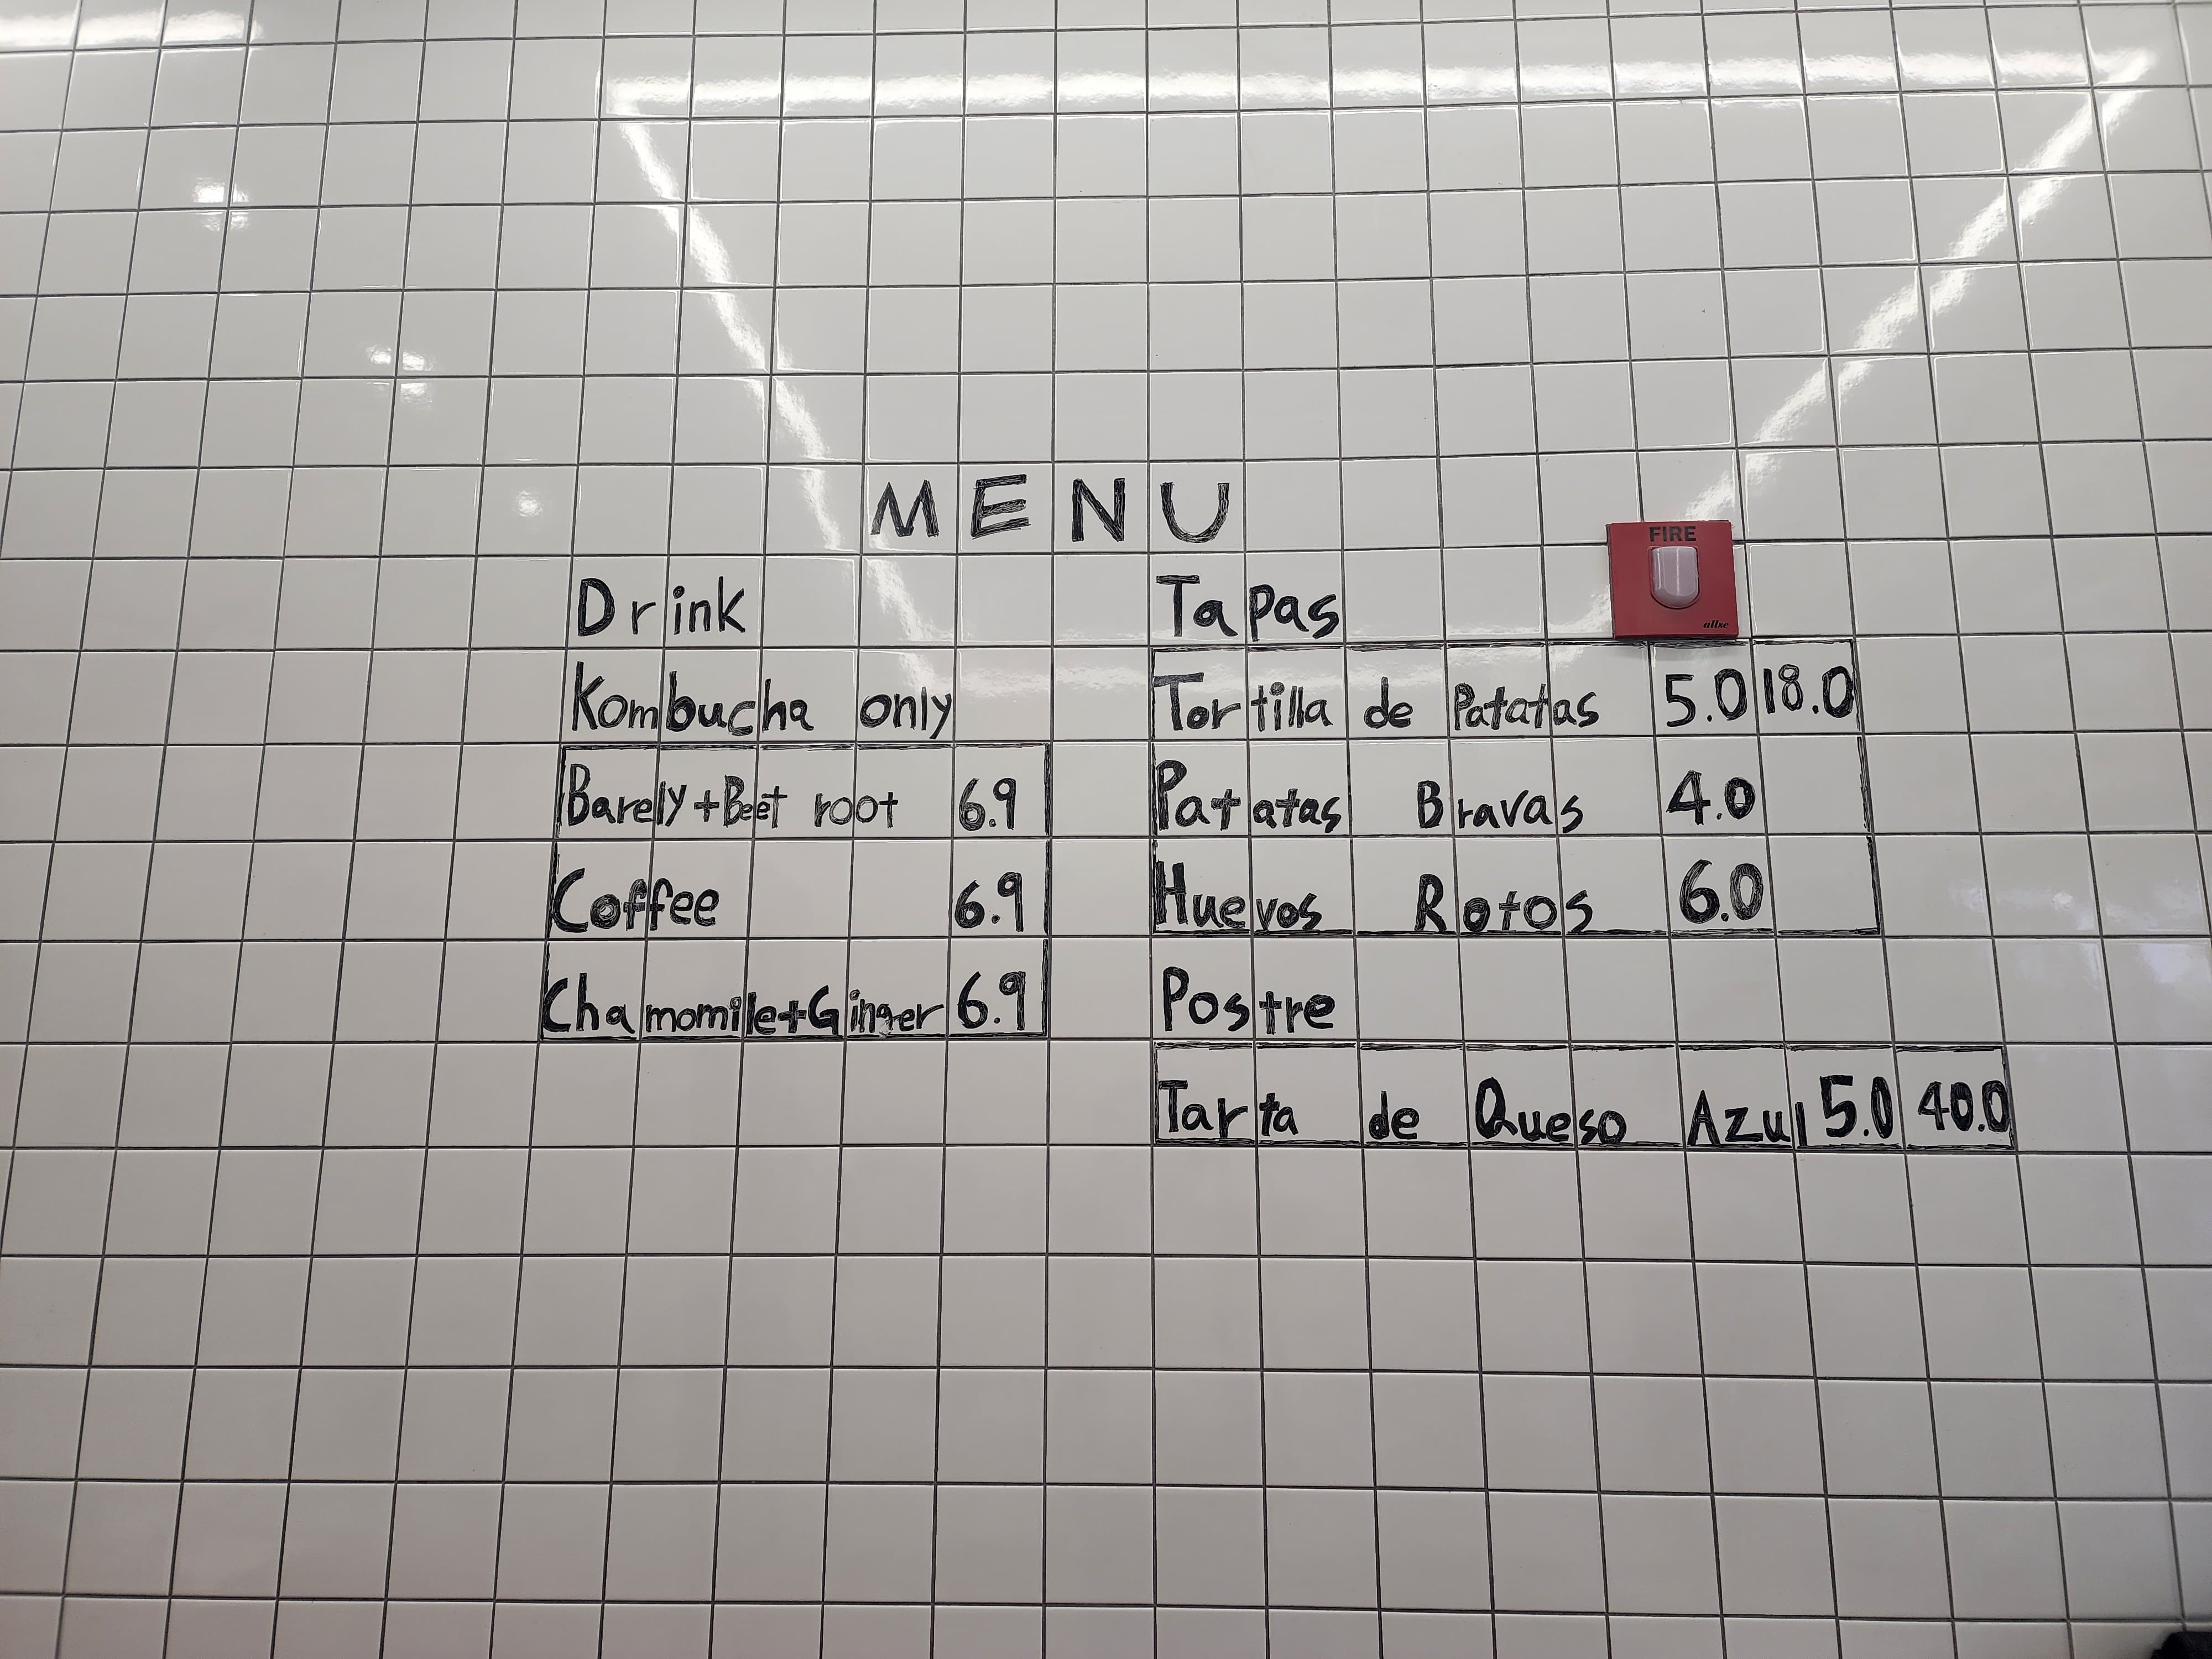 MENU
Drink
Kombucha only
Barely+Beet root 6.9
Coffee 6.9
Chamomile+Ginger 6.9
FIRE
allsc
Tapas
Tortilla de Patatas 5.0 18.0
Patatas Bravas 4.0
Huevos Rotos 6.0
Postre
Tarta de Queso Azul 5.0 40.0